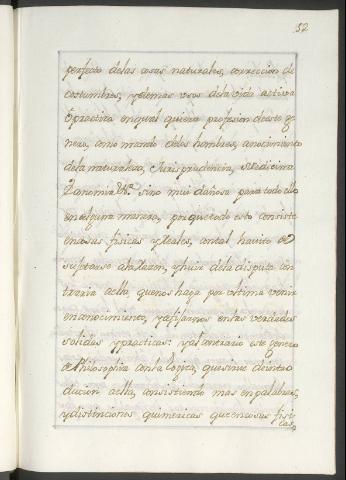 52
perfecto delas cosas naturales, correccion de
costumbres, y demas usos dela vida activa
ô practica en qual quiera profesion deeste ge
nero, como mando delos hombres, conocimiento
dela naturaleza, Jurisprudencia, Medicina
&ra sino mui dañosa para todo ello
en alguna manera, porque todo esto consiste
en cosas fisicas y Reales, con tal havito de
sujetarse ala razon, y huir dela disputa con
traria aella, que nos haga por ultimo venir
en conocimiento, y afirmarnos en las verdades
solidas y practicas: y al contrario este genero
de Philosophia con la Logica, que sirve de intro
ducion aella, consistiendo mas en palabras,
y distinciones quimericas que en cosas fisi
cas,